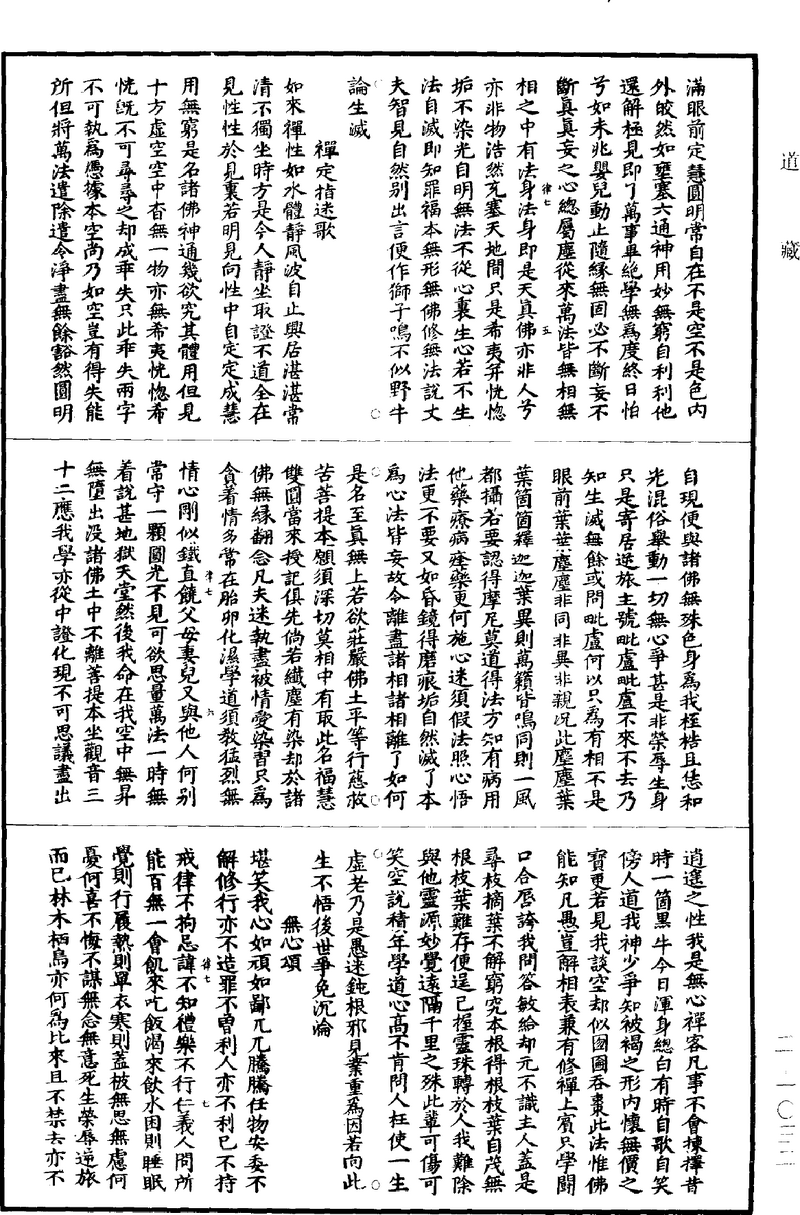 道藏
滿眼前定慧圓明常自在不是空不是色內
外皎然如壅塞六通神用妙無窮自利利他
還解極見即了萬事畢絕學無為度終日怕
兮如未兆嬰兒動止隨緣無固必不斷妄不
斷真真妄之心總屬塵從來萬法皆無相無
相之中有法身法身即是天真佛亦非人兮
亦非物浩然充塞天地間只是希夷并恍惚
垢不染光自明無法不從心裏生心若不生
法自滅即知罪福本無形無佛修無法說丈
夫智見自然別出言便作獅子鳴不似野牛
論生滅
禪定指迷歌
如來禪性如水體靜風波自止興居湛湛常
清不獨坐時方是今人靜坐取證不道全在
見性性於見裏若明見向性中自定定成慧
用無窮是名諸佛神通幾欲究其體用但見
十方虛空空中杳無一物亦無希夷恍惚希
恍既不可尋尋之却成乖失只此乖失兩字
不可執為憑據本空尚乃如空豈有得失能
所但將萬法遣除遣令淨盡無餘豁然圓明
律七
五
自現便與諸佛無殊色身為我桎梏且恁和
光混俗舉動一切無心爭甚是非榮辱生身
只是寄居逆旅主號毗盧毗盧不來不去乃
知生滅無餘或問毗盧何以只為有相不是
眼前葉葉塵塵非同非異非親況此塵塵葉
葉箇箇釋迦迦葉異則萬籟皆鳴同則一風
都攝若要認得摩尼莫道得法方知有病用
他藥療病痊藥更何施心迷須假法照心悟
法更不要又如昏鏡得磨痕垢自然滅了本
為心法皆妄故令離盡諸相諸相離了如何
是名至真無上若欲莊嚴佛土平等行慈救
苦菩提本願須深切莫相中有取此名福慧
雙圓當來授記俱先倘若纖塵有染却於諸
佛無緣翻念凡夫迷執盡被情愛染習只為
貪着情多常在胎卵化濕學道須教猛烈無
情心剛似鐵直饒父母妻兒又與他人何別
常守一顆圓光不見可欲思量萬法一時無
着說甚地獄天堂然後我命在我空中無昇
無墮出沒諸佛土中不離菩提本坐觀音三
十二應我學亦從中證化現不可思議盡出
律七
六
逍遙之性我是無心禪客凡事不會揀擇昔
時一箇黑牛今日渾身總白有時自歌自笑
傍人道我神少爭知被褐之形內懷無價之
寶更若見我談空却似囫圇吞棗此法惟佛
能知凡愚豈解相表兼有修禪上賓只學鬪
口合唇誇我問答敏給却元不識主人蓋是
尋枝摘葉不解窮究本根得根枝葉自茂無
根枝葉難存便逞已握靈珠轉於人我難除
與他靈源妙覺遠隔千里之殊此輩可傷可
笑空說積年學道心高不肯問人枉使一生
虛老乃是愚迷鈍根邪見業重為因若向此
生不悟後世爭免沉淪
無心頌
堪笑我心如頑如鄙兀兀騰騰任物安委不
解修行亦不造罪不曾利人亦不利己不持
戒律不拘忌諱不知禮樂不行仁義人間所
能百無一會飢來吃飯渴來飲水困則睡眠
覺則行履熱則單衣寒則蓋被無思無慮何
憂何喜不悔不謀無念無意死生榮辱逆旅
而已林木栖鳥亦何為比來且不禁去亦不
律七
七
二–一〇三二